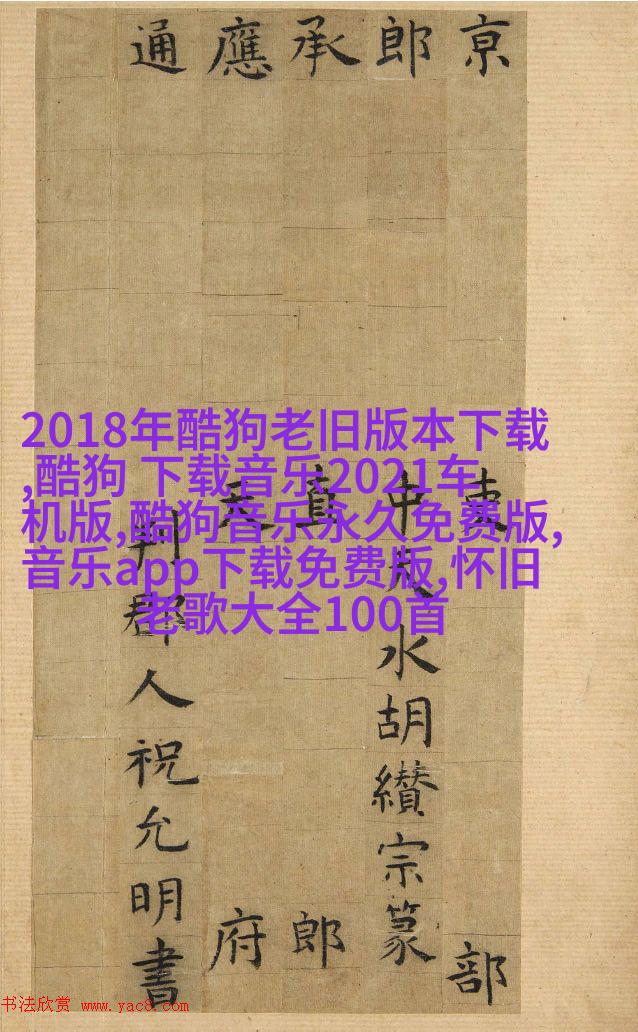 京吏部
郎中天水胡纘宗篆
承直郎
應天府
通判郡人祝允明書
2018年酷狗老旧版本下载
,酷狗 下载音乐2021车
机版,酷狗音乐永久免费版,
音乐app下载免费版,怀旧
老歌大全100首
书法欣赏 www.yac8.com